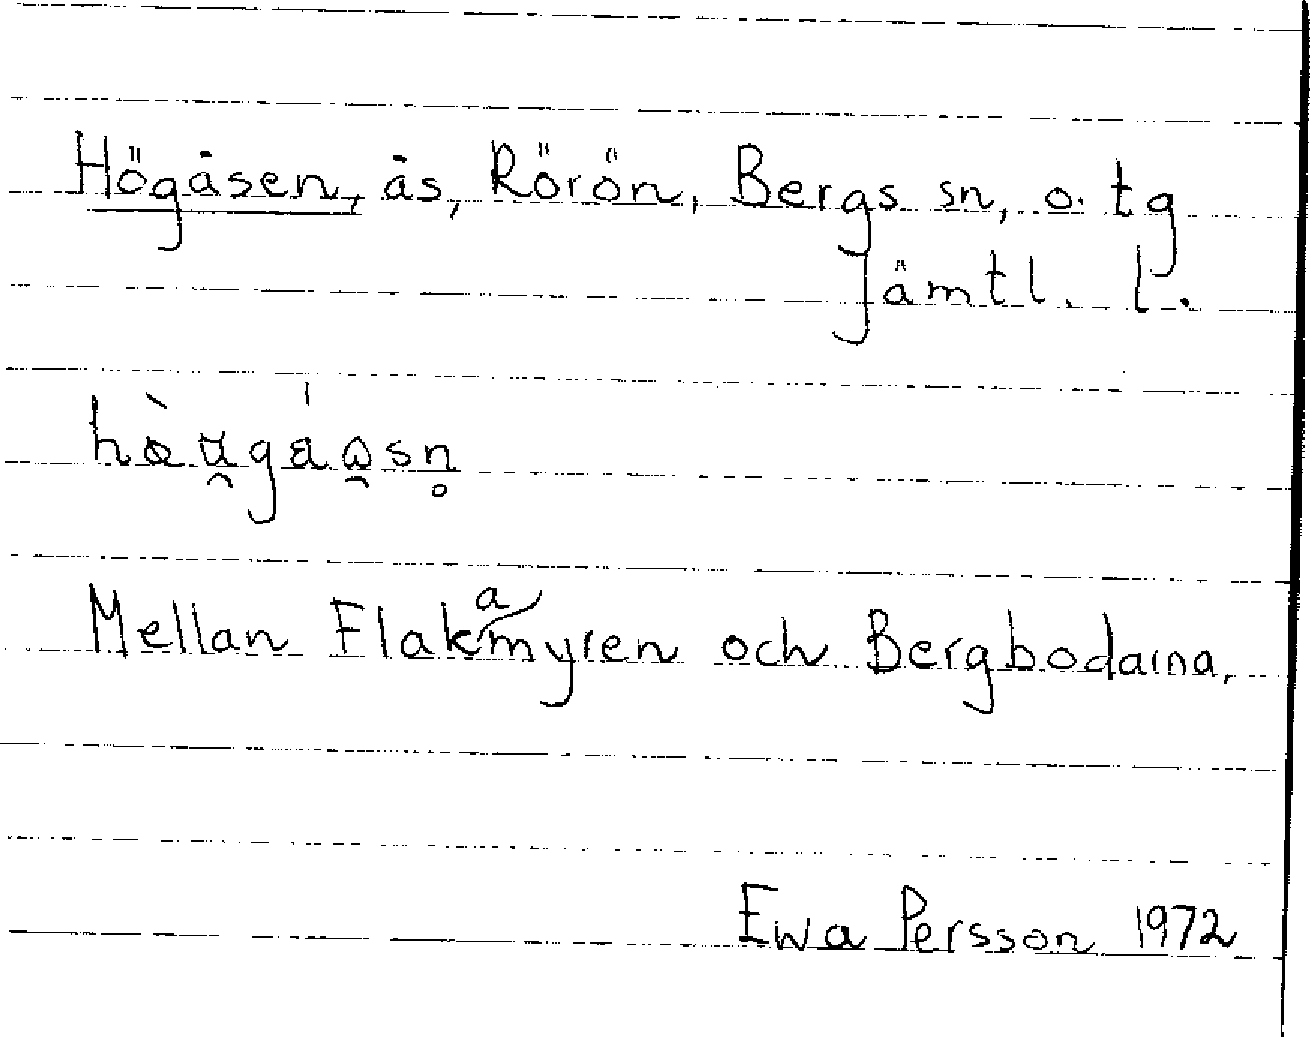 Högåsen, ås, Rörön, Bergs sn, o. tg
Jämtl. l.
Mellan Flakamyren och Bergbodarna.
Ewa Persson 1972